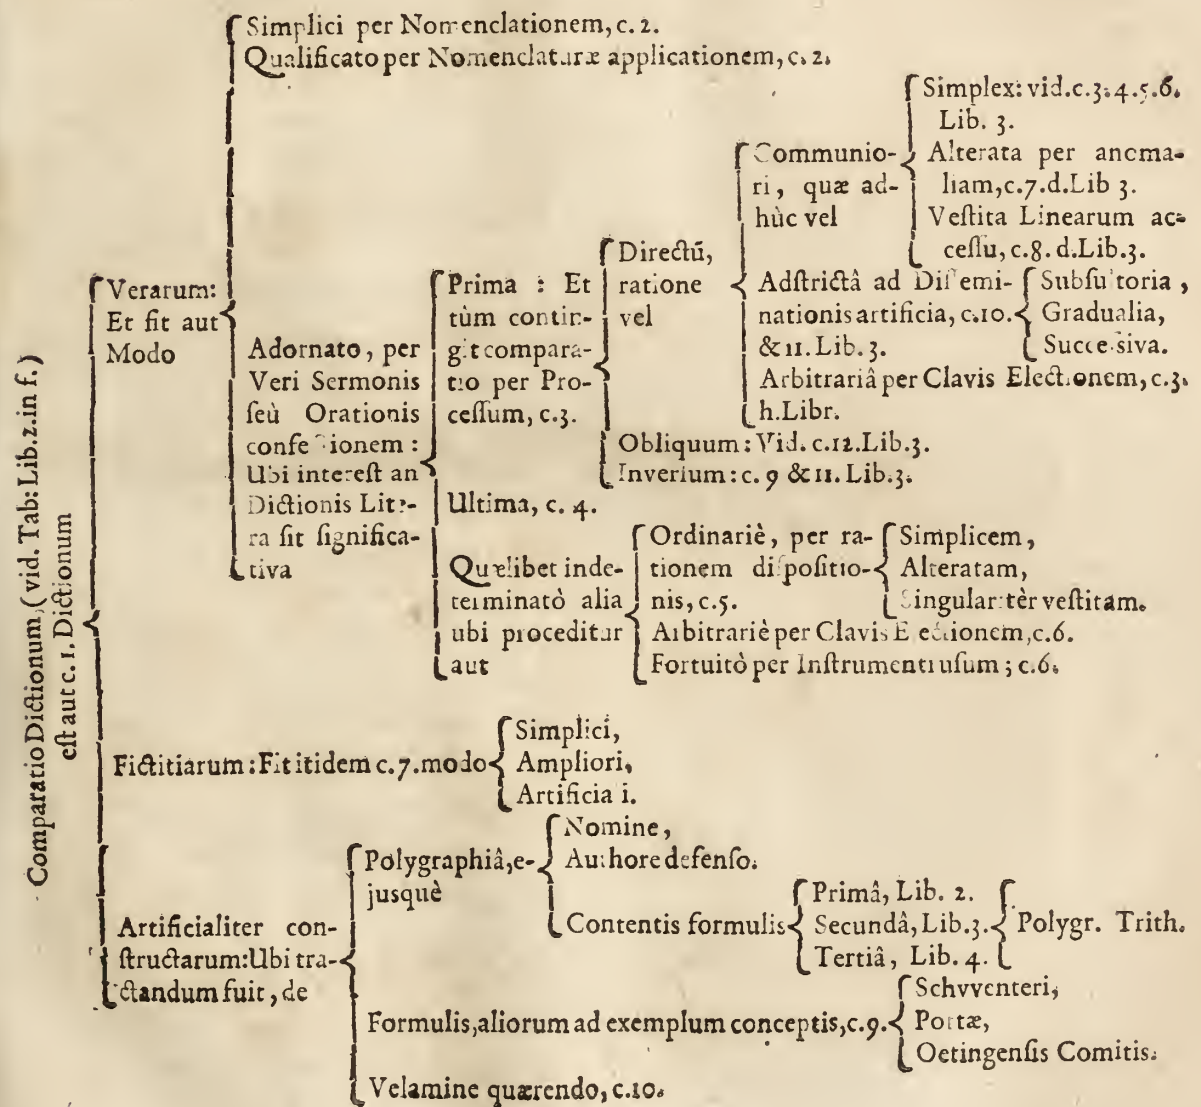 Comparatio Dictionum, (vid. Tab: Lib. 2. in f.)
est aut c. 1. Dictionum
Verarum:
Et fit aut
Modo
Simplici per Nomenclationem, c. 2.
Qualificato per Nomenclaturæ applicationem, c. 2.
Adornato, per
Veri Sermonis
seù Orationis
confectionem :
Ubi interest an
Dictionis Lite-
ra sit significa-
tiva
Prima : Et
tùm contin-
git compara-
tio per Pro-
cessum, c. 3.
Directũ,
ratione
vel
Communio-
ri, quæ ad-
hùc vel
Simplex: vid. c. 3. 4. 5. 6.
Lib. 3.
Alterata per anoma-
liam, c. 7. d. Lib 3.
Vestita Linearum ac-
cessu, c. 8. d. Lib. 3.
Adstrictâ ad Dissemi-
nationis artificia, c. 10.
& 11. Lib. 3.
Subsultoria,
Gradualia,
Successiva.
Arbitrariâ per Clavis Electionem, c. 3.
h. Libr.
Obliquum: Vid. c. 12. Lib. 3.
Inversum: c. 9 & 11. Lib. 3.
Ultima, c. 4.
Quælibet inde-
terminatò alia
ubi proceditur
aut
Ordinariè, per ra-
tionem dispositio-
nis, c. 5.
Simplicem,
Alteratam,
Singularitèr vestitam.
Arbitrariè per Clavis Electionem, c. 6.
Fortuitò per Instrumenti usum ; c. 6.
Fictitiarum: Fit itidem c. 7. modo
Simplici,
Ampliori,
Artificiali.
Artificialiter con-
structarum: Ubi tra-
ctandum fuit, de
Polygraphiâ, e-
jusquè
Nomine,
Authore defenso.
Contentis formulis
Primâ, Lib. 2.
Secundâ, Lib. 3.
Tertiâ, Lib. 4.
Polygr. Trith.
Formulis, aliorum ad exemplum conceptis, c. 9.
Schvventeri,
Portæ,
Oetingensis Comitis.
Velamine quærendo, c. 10.